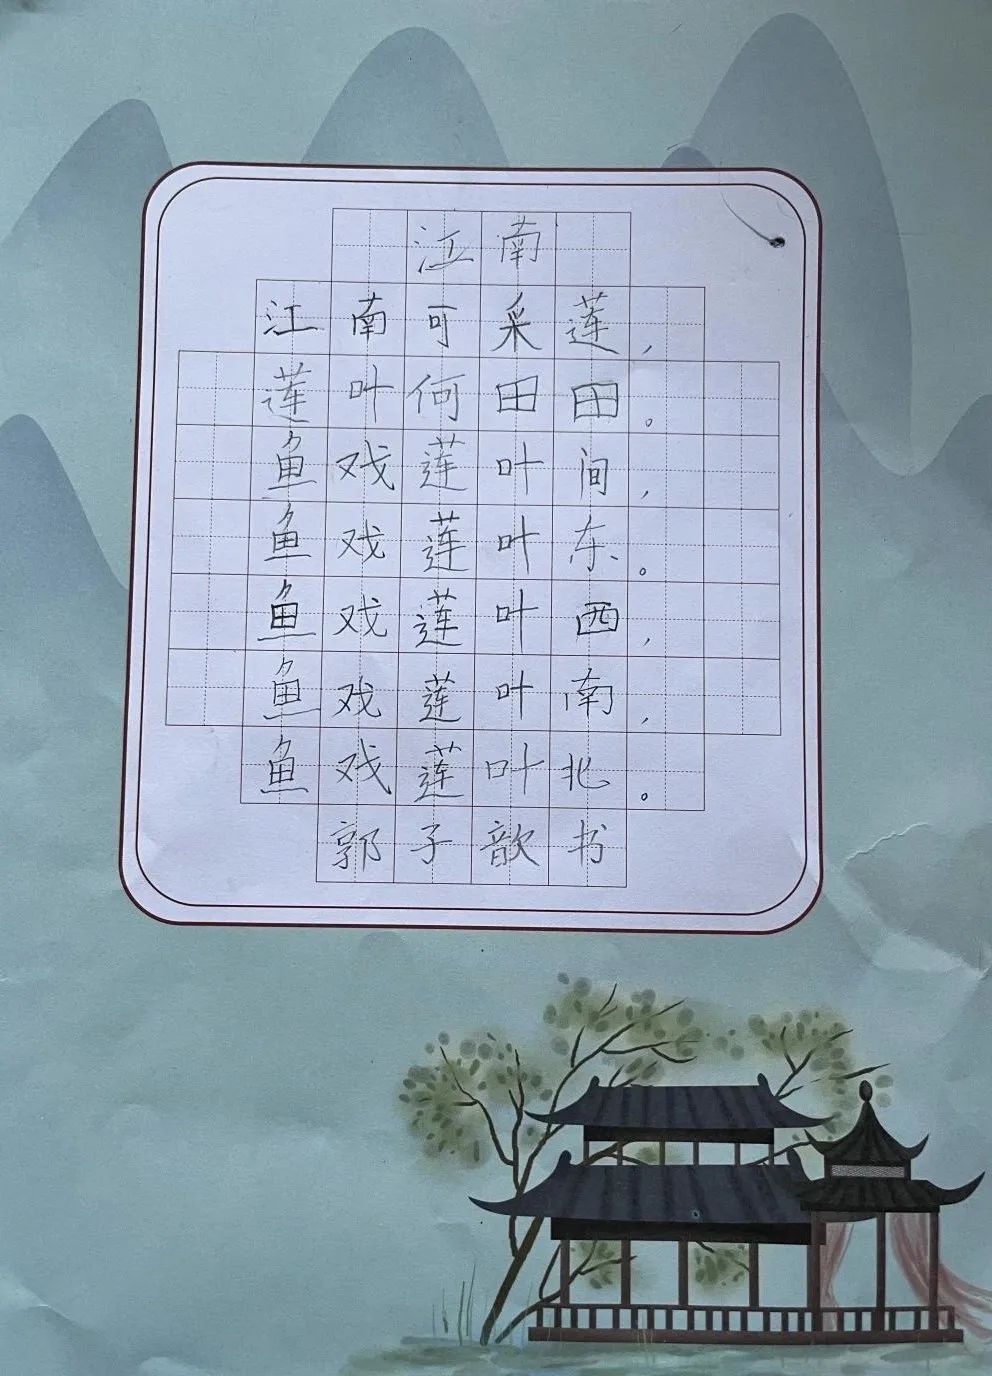 江南
江南可采莲，
莲叶何田田。
鱼戏莲叶间，
鱼戏莲叶东。
鱼戏莲叶西，
鱼戏莲叶南，
鱼戏莲叶北。
郭子歆书